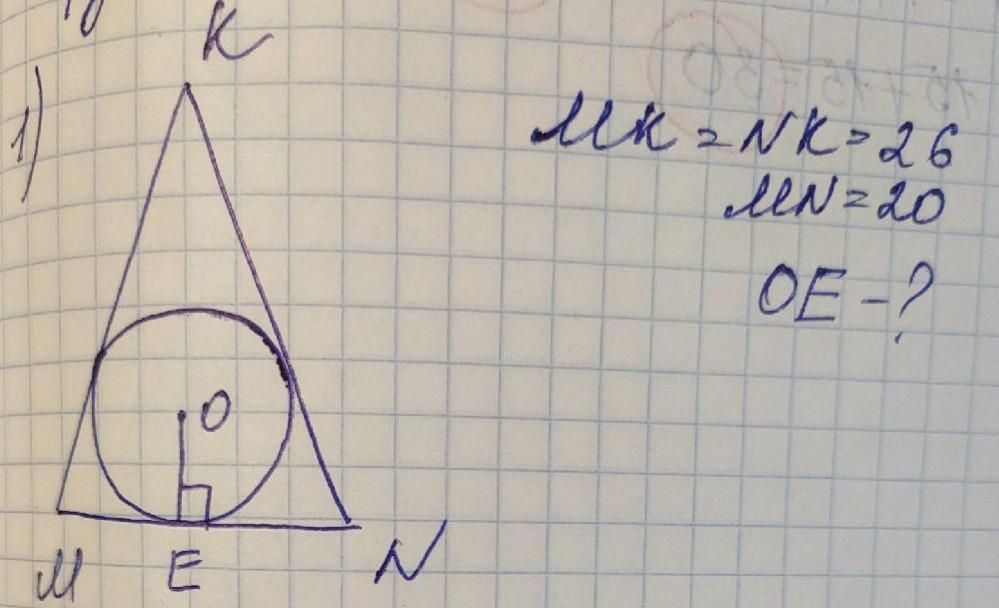 K
1)
MK = NK = 26
MN = 20
OE - ?
O
M E N